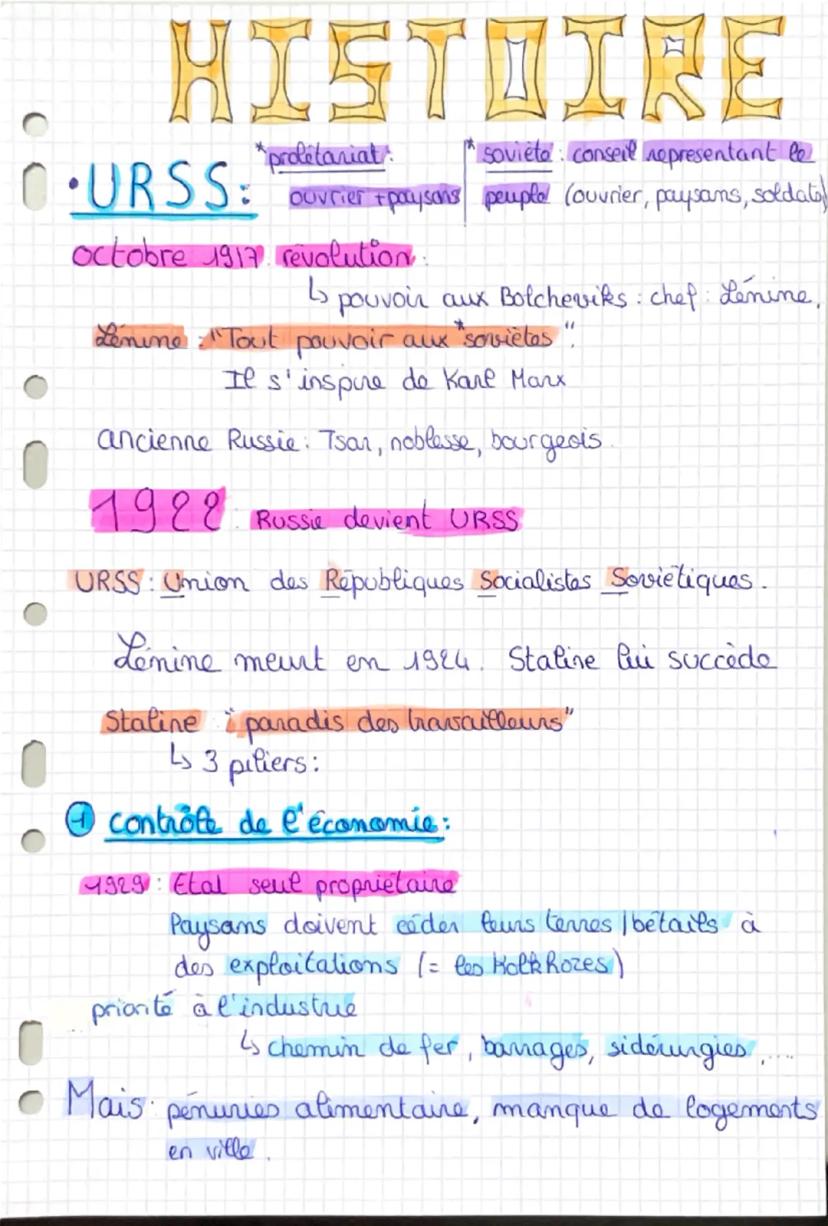 HISTOIRE
*prolétariat:
ouvrier + paysans
*soviéte : conseil représentant le
peuple (ouvrier, paysans, soldats)
• URSS:
octobre 1917 révolution:
↳ pouvoir aux Bolcheviks : chef : Lénine.
Lénine : "Tout pouvoir aux *soviétes".
Il s'inspire de Karl Marx
ancienne Russie : Tsar, noblesse, bourgeois.
1922 : Russie devient URSS
URSS : Union des Républiques Socialistes Soviétiques.
Lénine meurt en 1924. Staline lui succède
Staline : "paradis des travailleurs"
↳ 3 piliers :
1 contrôle de l'économie :
1929 : Etat seul propriétaire
Paysans doivent céder leurs terres / bétails à
des exploitations (= les KolkHozes)
priorité à l'industrie
↳ chemin de fer, barrages, sidérurgies, ....
Mais : pénuries alimentaire, manque de logements
en ville.